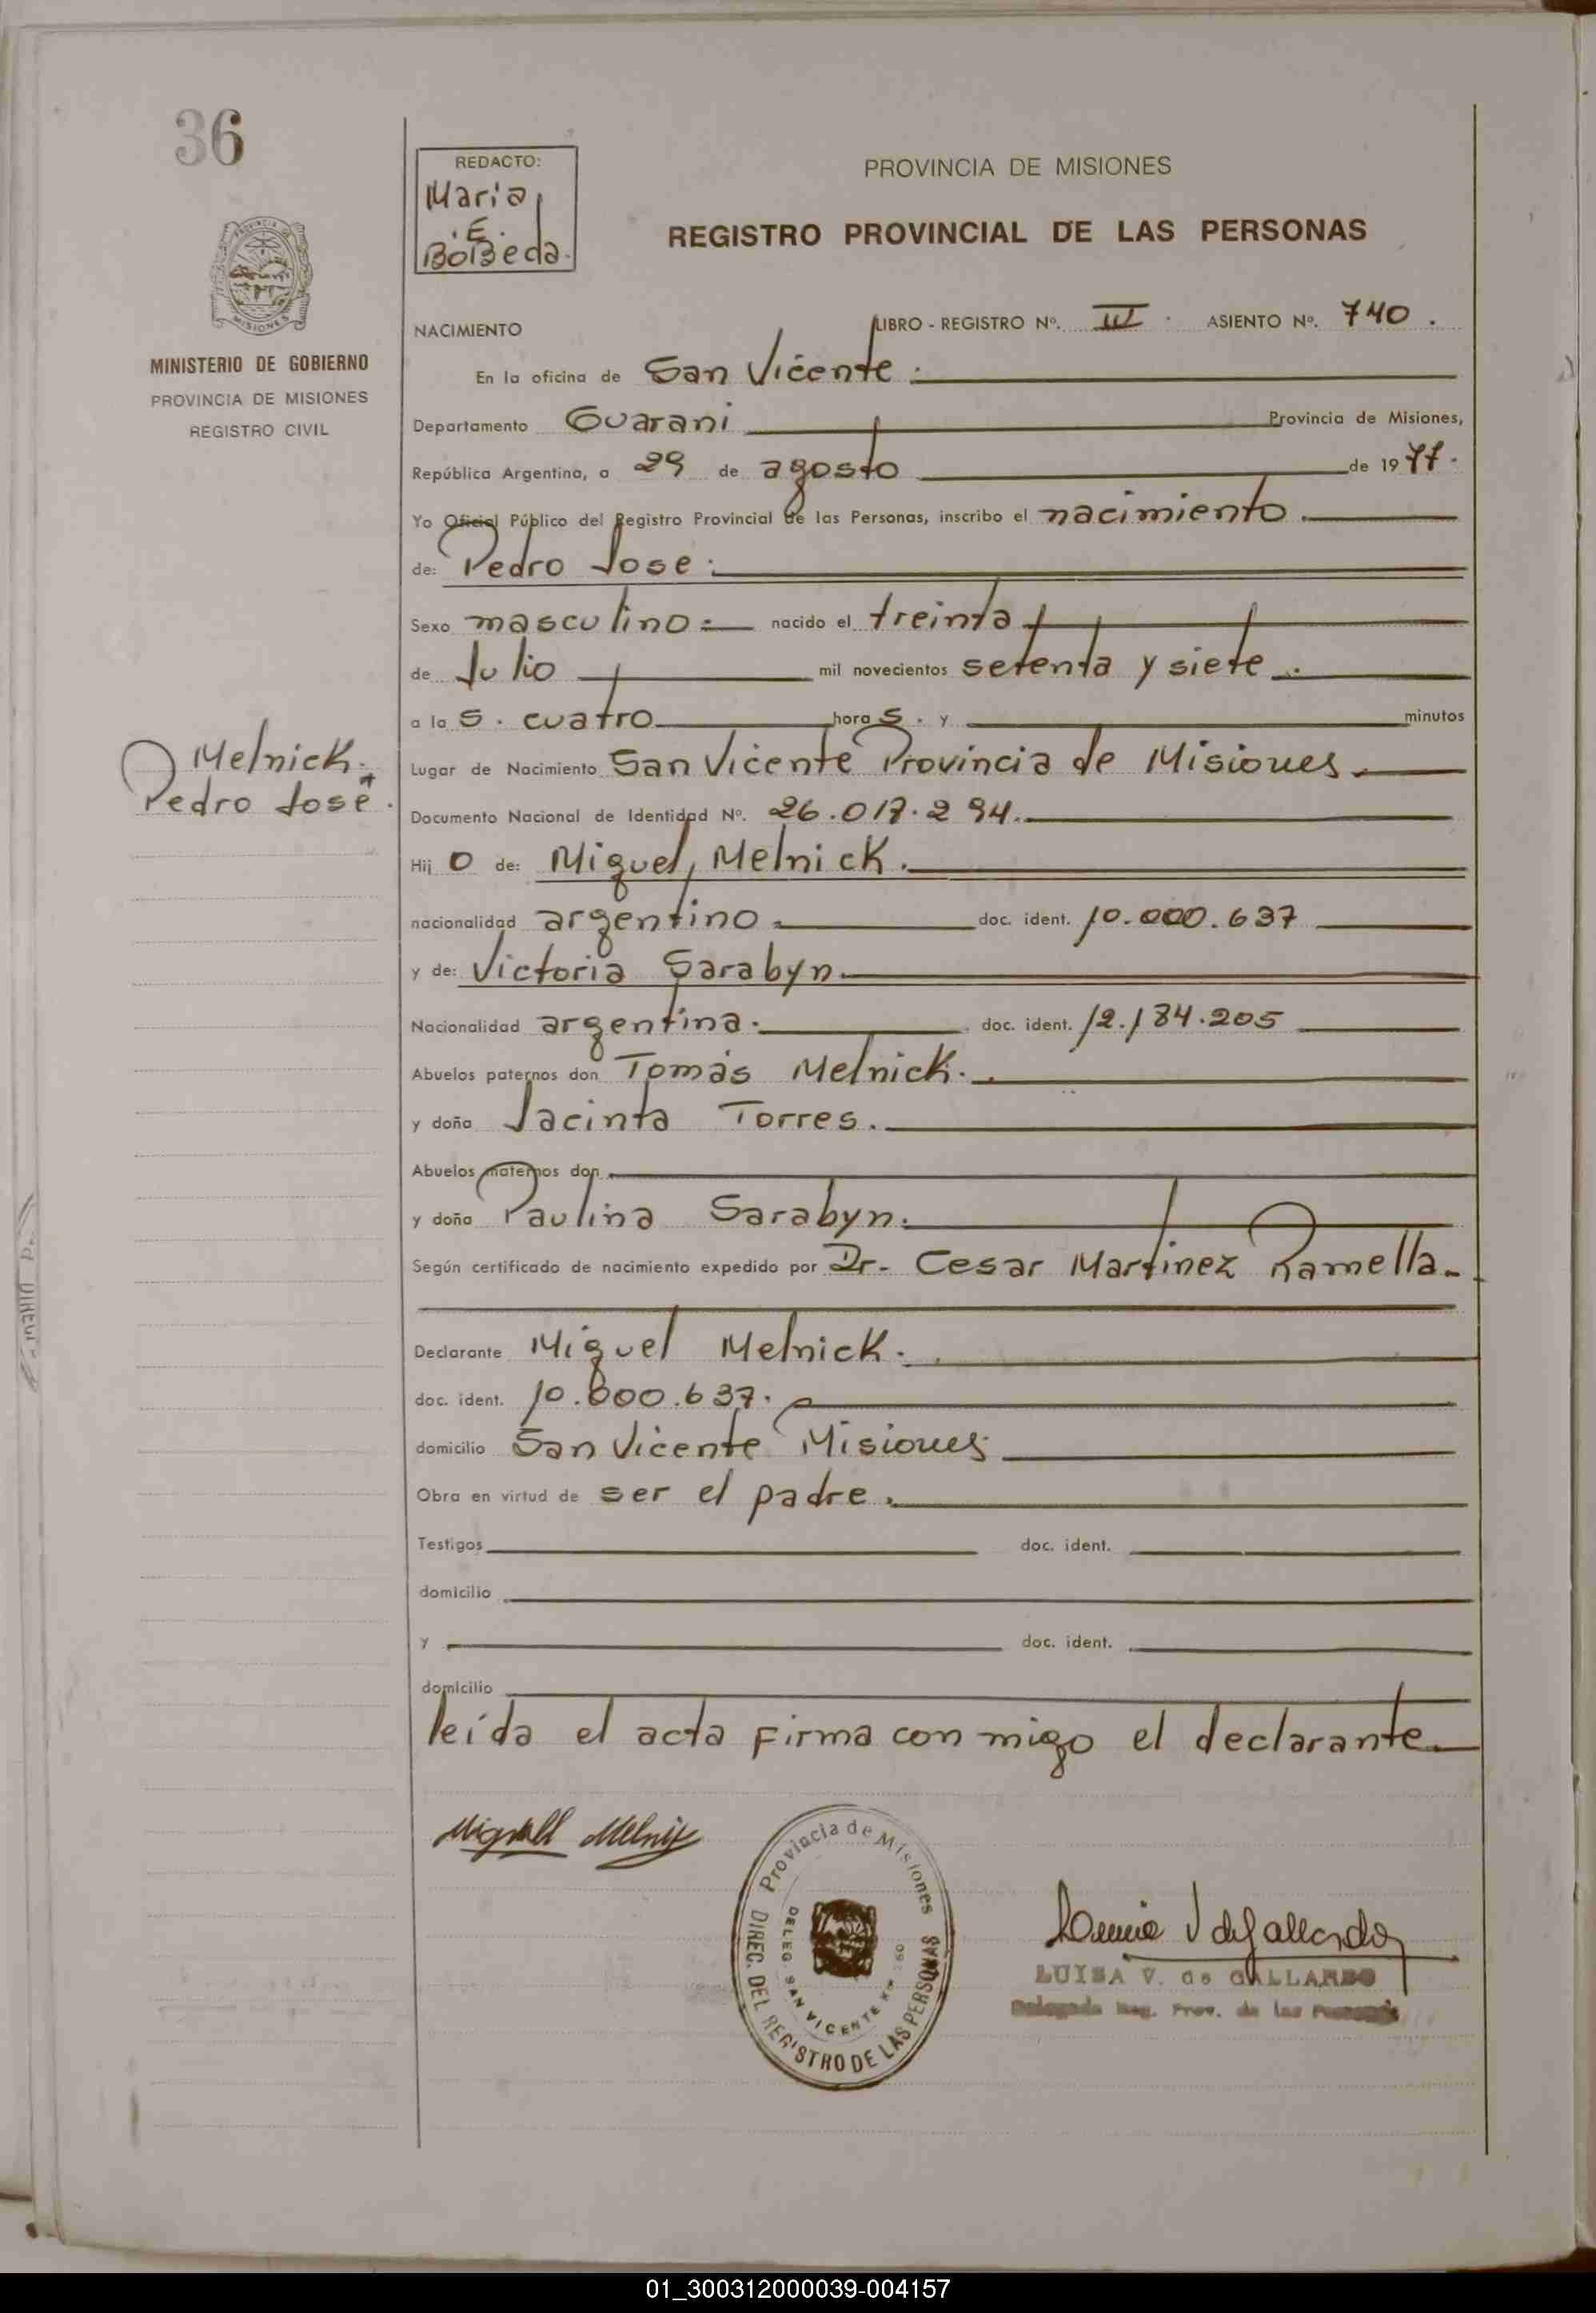 36
REDACTO:
Maria
E.
BolBeda.
PROVINCIA DE MISIONES
REGISTRO PROVINCIAL DE LAS PERSONAS
MISIONES
MINISTERIO DE GOBIERNO
PROVINCIA DE MISIONES
REGISTRO CIVIL
NACIMIENTO LIBRO - REGISTRO Nº. III . ASIENTO Nº. 740 .
En la oficina de San Vicente .
Departamento Guarani Provincia de Misiones,
República Argentina, a 29 de agosto de 1977.
Yo Oficial Público del Registro Provincial de las Personas, inscribo el nacimiento.
de: Pedro Jose.
Sexo masculino nacido el treinta
de Julio mil novecientos setenta y siete.
a la s. cuatro horas. y minutos
Melnick.
Pedro José.
Lugar de Nacimiento San Vicente Provincia de Misiones.
Documento Nacional de Identidad Nº. 26.017.294.
Hij o de: Miguel, Melnick.
nacionalidad argentino. doc. ident. 10.000.637
y de: Victoria Sarabyn.
Nacionalidad argentina. doc. ident. 12.184.205
Abuelos paternos don Tomás Melnick.
y doña Jacinta Torres.
Abuelos maternos don
y doña Paulina Sarabyn.
Según certificado de nacimiento expedido por Dr. Cesar Martinez Ramella.
Declarante Miguel Melnick.
doc. ident. 10.000.637.
domicilio San Vicente Misiones
Obra en virtud de ser el padre.
Testigos doc. ident.
domicilio
y doc. ident.
domicilio
leída el acta firma con migo el declarante.
Provincia de Misiones
DIREC. DEL REGISTRO DE LAS PERSONAS
DELEG. SAN VICENTE
LUISA V. de GALLARDO
Delegada Reg. Prov. de las Personas
01_300312000039-004157